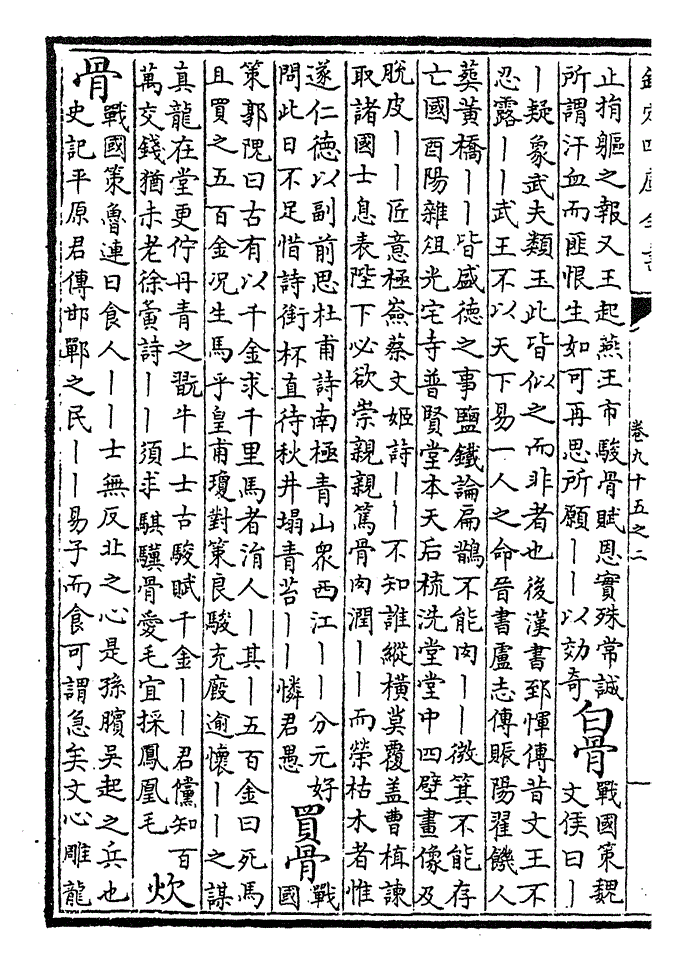 欽定四庫全書 卷九十五之二
止捐軀之報又王起燕王市駿骨賦恩實殊常誠
所謂汗血而匪恨生如可再思所願丨丨以効奇
白骨
戰國策魏
文侯曰丨
丨疑象武夫類玉此皆似之而非者也後漢書郅惲傳昔文王不
忍露丨丨武王不以天下易一人之命晉書盧志傳賑陽翟饑人
葬黃橋丨丨皆盛德之事鹽鐵論扁鵲不能肉丨丨微箕不能存
亡國酉陽雜俎光宅寺普賢堂本天后梳洗堂堂中四壁畫像及
脫皮丨丨匠意極嶮蔡文姬詩丨丨不知誰縱橫莫覆蓋曹植諫
取諸國士息表陛下必欲崇親親篤骨肉潤丨丨而榮枯木者惟
遂仁德以副前思杜甫詩南極青山眾西江丨丨分元好
問此日不足惜詩銜杯直待秋井塌青苔丨丨憐君愚
買骨
戰
國
策郭隗曰古有以千金求千里馬者涓人丨其丨五百金曰死馬
且買之五百金况生馬乎皇甫瓊對策良駿充廐逾懷丨丨之謀
真龍在堂更佇丹青之翫牛上士古駿賦千金丨丨君儻知百
萬交錢猶未老徐夤詩丨丨須求騏驥骨愛毛宜採鳳凰毛
炊
骨
戰國策魯連曰食人丨丨士無反北之心是孫臏吳起之兵也
史記平原君傳邯鄲之民丨丨易子而食可謂急矣文心雕龍